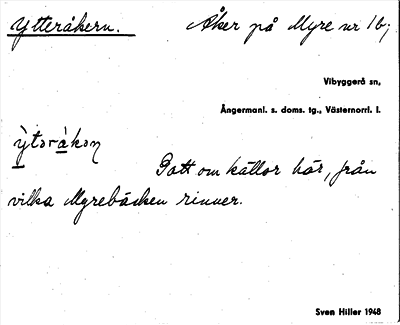 Ytteråkern. Åker på Myre nr 1b;
Vibyggerå sn,
Ångermanl. s. doms. tg., Västernorrl. l.
Gott om källor här, från
vilka Myrebäcken rinner.
Sven Hiller 1948